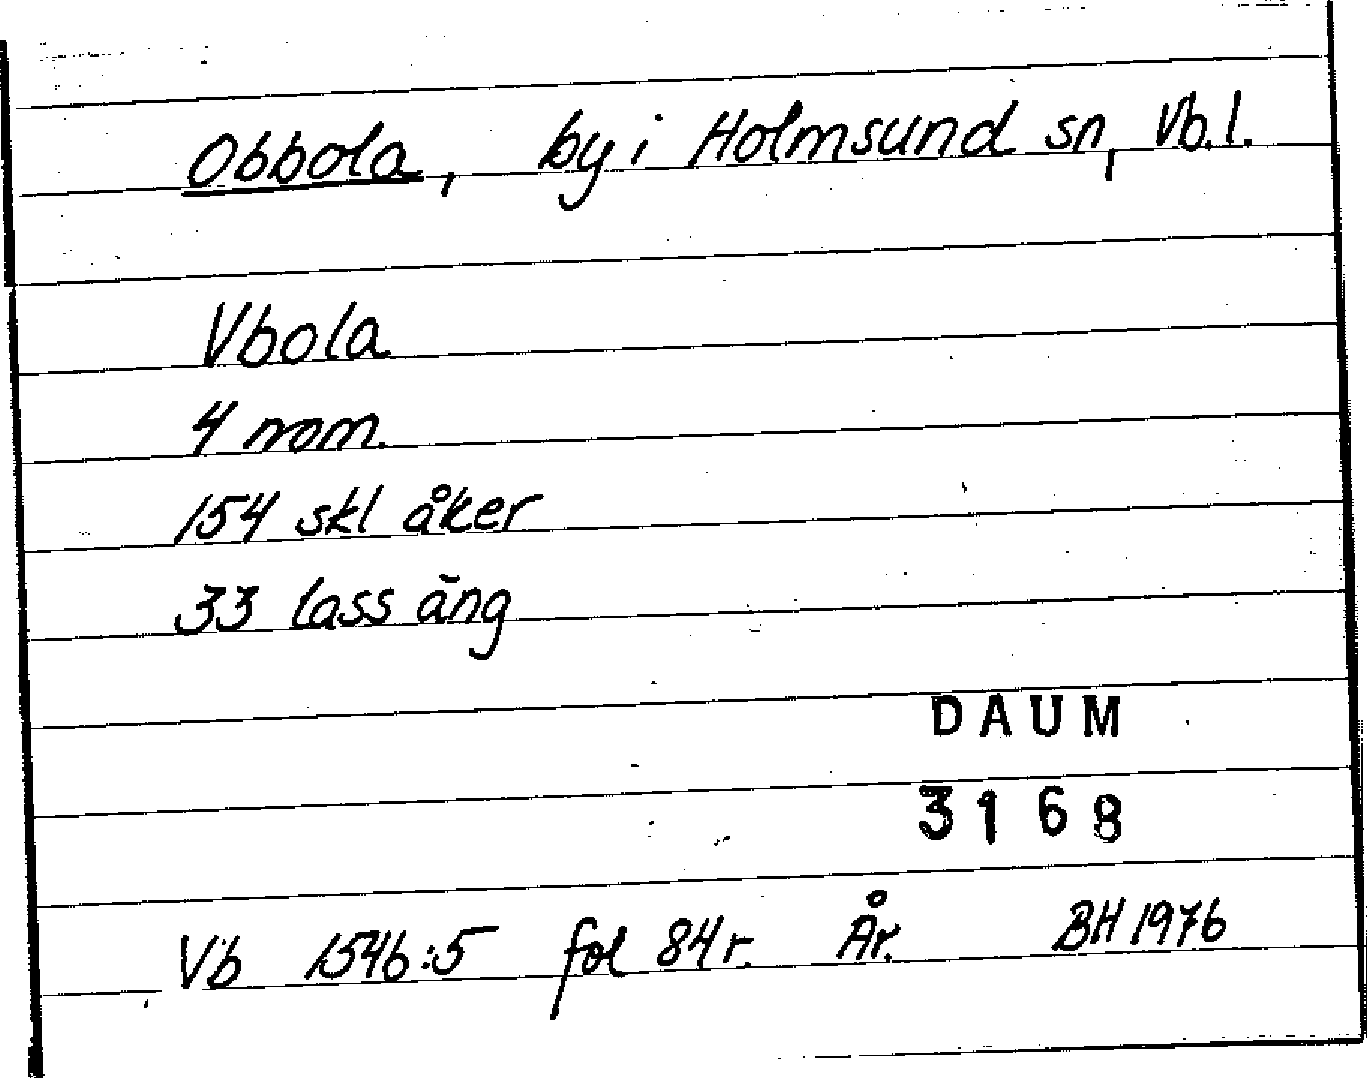 Obbola, by i Holmsund sn, Vb.l.
Vbola
4 nom.
154 skl åker
33 lass äng
DAUM
3168
Vb 1546:5 fol 84 r. År. BH 1976